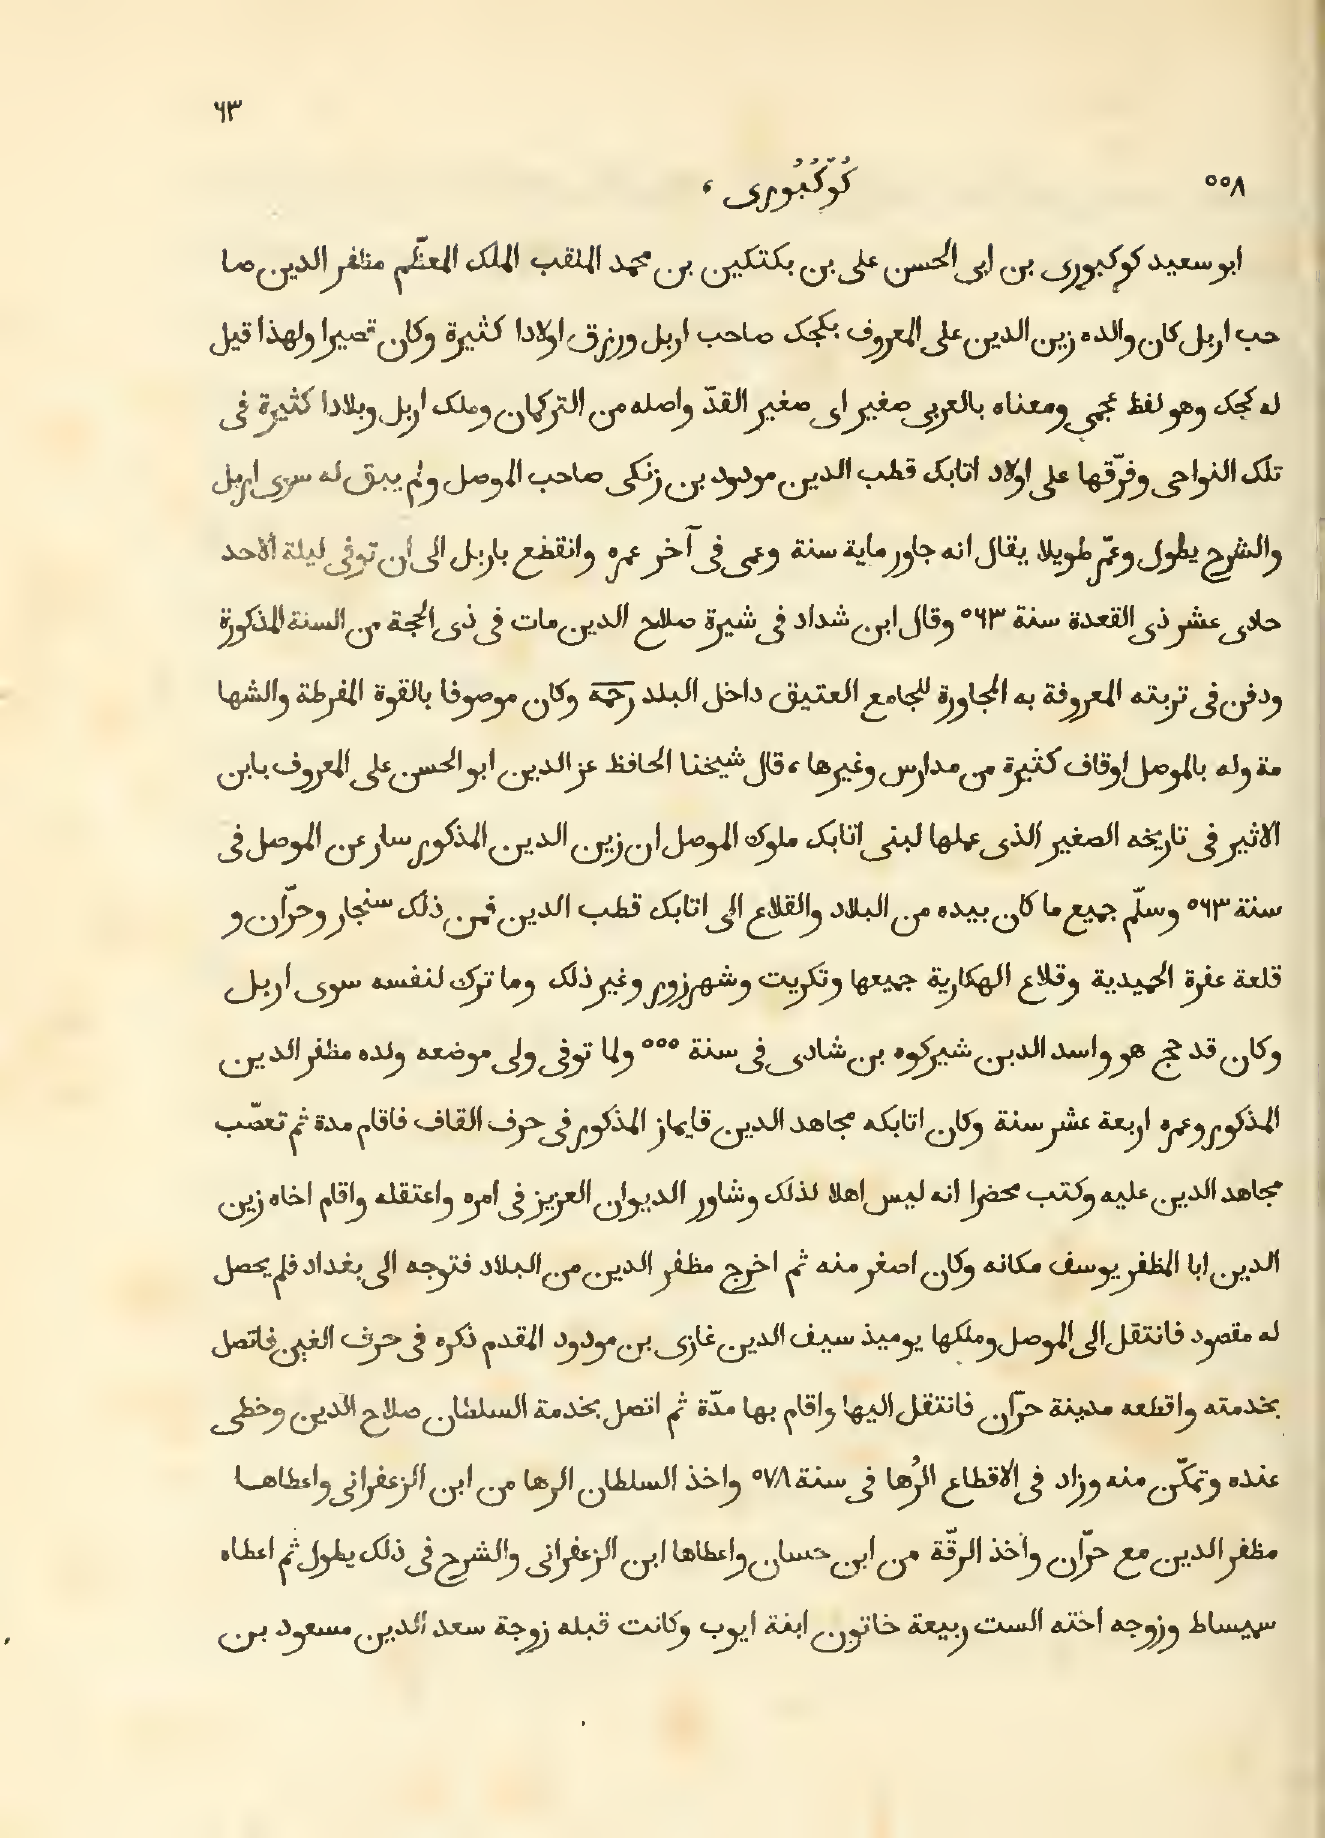 ٦٣
٥٥٨ كُوكُبُورى ،
ابو سعيد كوكبورى بن ابى الحسن على بن بكتكين بن محمد الملقب الملك المعظّم مظفر الدين صا
حب اربل كان والده زين الدين على المعروف بكجك صاحب اربل ورزق اولادا كثيرة وكان قصيرا ولهذا قيل
له كجك وهو لفظ عجمى ومعناه بالعربى صغير اى صغير القدّ واصله من التركمان وملك اربل وبلادا كثيرة فى
تلك النواحى وفرّقها على اولاد اتابك قطب الدين مودود بن زنكى صاحب الموصل ولم يبق له سوى اربل
والشرح يطول وعمّر طويلا يقال انه جاوز ماية سنة وعمى فى آخر عمره وانقطع باربل الى ان توفى ليلة الاحد
حادى عشر ذى القعدة سنة ٥٦٣ وقال ابن شداد فى شيرة صلاح الدين مات فى ذى الحجة من السنة المذكورة
ودفن فى تربته المعروفة به المجاورة للجامع العتيق داخل البلد رحمه وكان موصوفا بالقوة المفرطة والشها
مة وله بالموصل اوقاف كثيرة من مدارس وغيرها ، قال شيخنا الحافظ عز الدين ابو الحسن على المعروف بابن
الاثير فى تاريخه الصغير الذى عملها لبنى اتابك ملوك الموصل ان زين الدين المذكور سار عن الموصل فى
سنة ٥٦٣ وسلّم جميع ما كان بيده من البلاد والقلاع الى اتابك قطب الدين فمن ذلك سنجار وحرّان و
قلعة عقرة الحميدية وقلاع الهكارية جميعها وتكريت وشهرزور وغير ذلك وما ترك لنفسه سوى اربل
وكان قد حج هو واسد الدين شيركوه بن شادى فى سنة ٥٥٥ ولما توفى ولى موضعه ولده مظفر الدين
المذكور وعمره اربعة عشر سنة وكان اتابكه مجاهد الدين قايماز المذكور فى حرف القاف فاقام مدة ثم تعصّب
مجاهد الدين عليه وكتب محضرا انه ليس اهلا لذلك وشاور الديوان العزيز فى امره واعتقله واقام اخاه زين
الدين ابا المظفر يوسف مكانه وكان اصغر منه ثم اخرج مظفر الدين من البلاد فتوجه الى بغداد فلم يحصل
له مقصود فانتقل الى الموصل وملكها يوميذ سيف الدين غازى بن مودود المقدم ذكره فى حرف الغين فاتصل
بخدمته واقطعه مدينة حرّان فانتقل اليها واقام بها مدّة ثم اتصل بخدمة السلطان صلاح الدين وخطى
عنده وتمكّن منه وزاد فى الاقطاع الرُها فى سنة ٥٧٨ واخذ السلطان الرها من ابن الزعفرانى واعطاها
مظفر الدين مع حرّان واخذ الرقّة من ابن حسان واعطاها ابن الزعفرانى والشرح فى ذلك يطول ثم اعطاه
سميساط وزوجه اخته الست ربيعة خاتون ابنة ايوب وكانت قبله زوجة سعد الدين مسعود بن